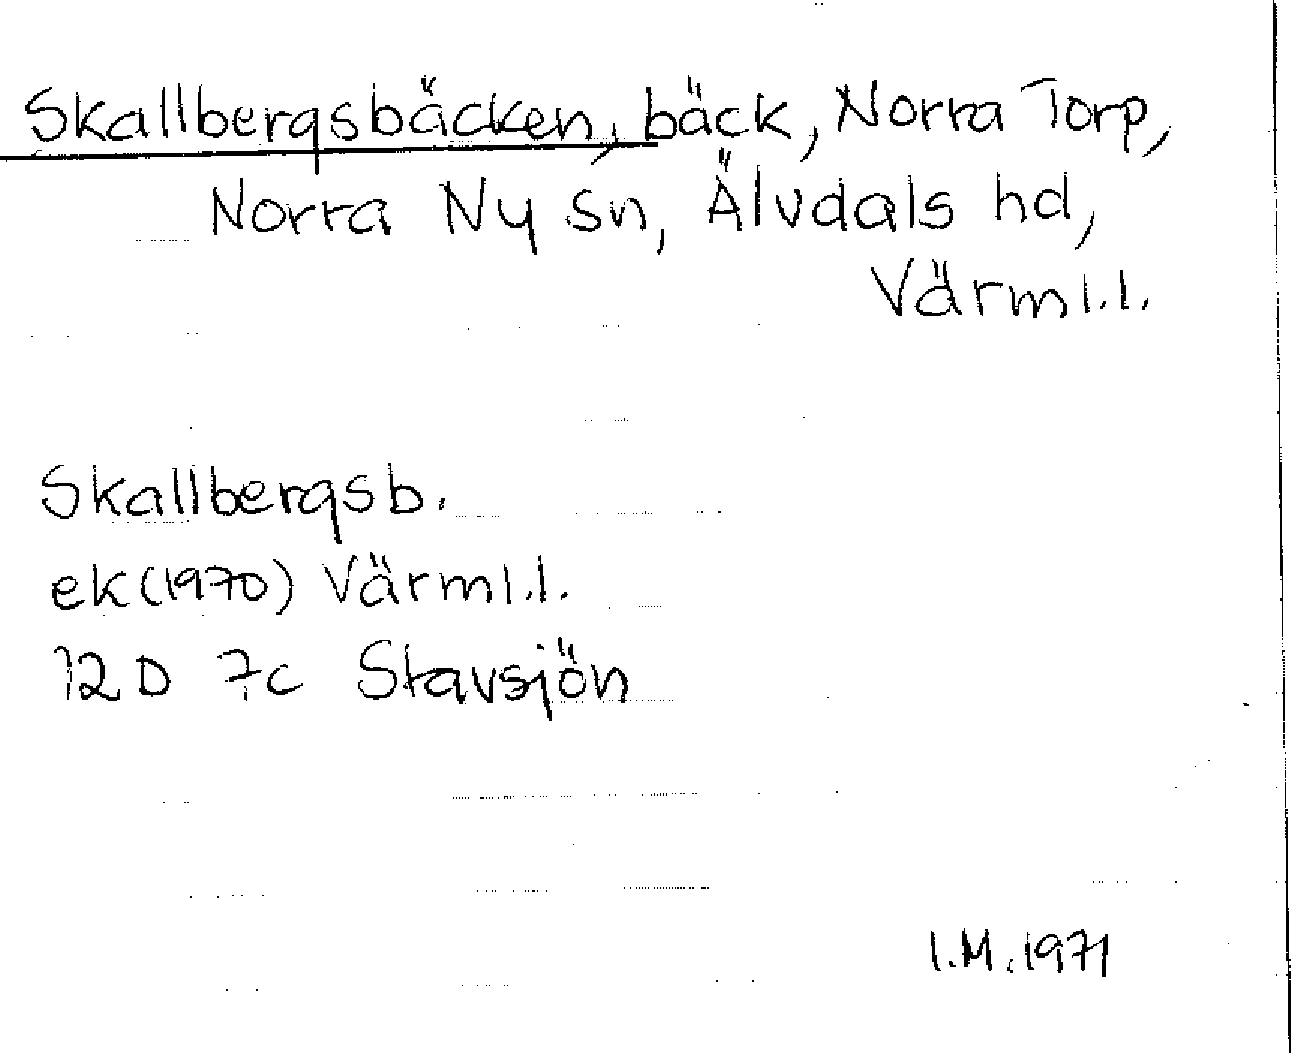 Skallbergsbäcken, bäck, Norra Torp,
Norra Ny sn, Älvdals hd,
Värml.l.
Skallbergsb.
ek (1970) Värml.l.
12D 7c Stavsjön
I.M. 1971